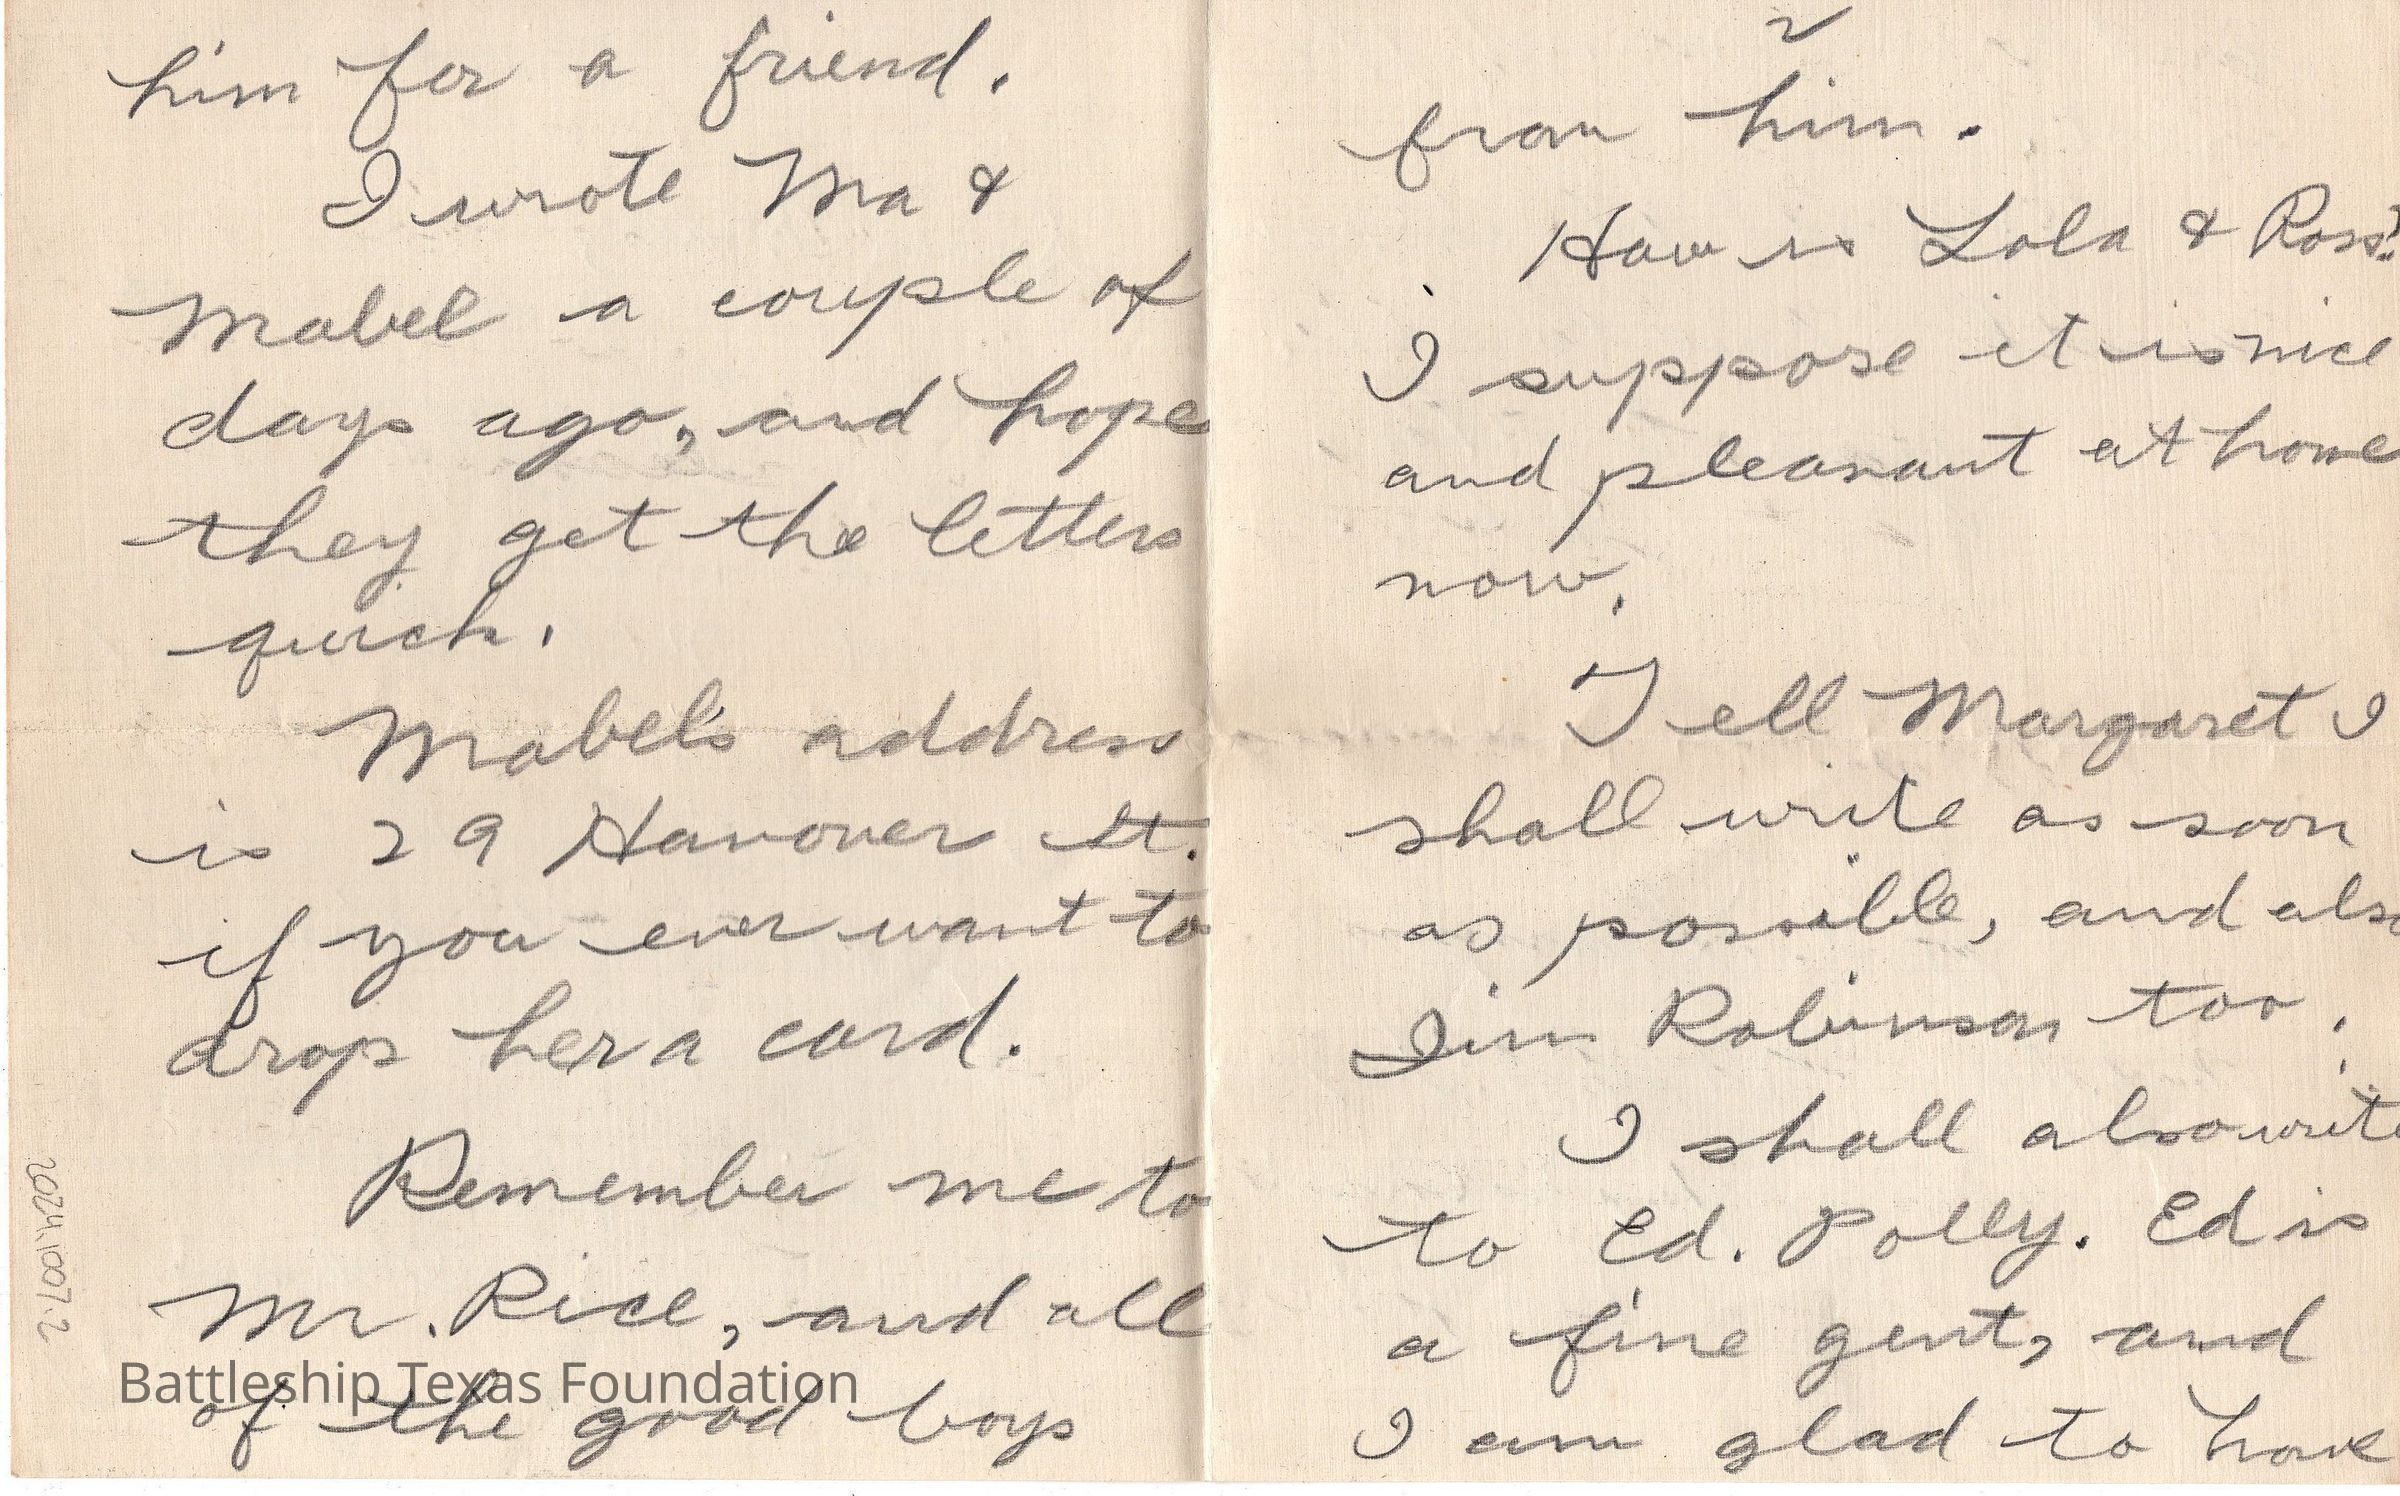 him for a friend.
I wrote Ma &
Mabel a couple of
days ago, and hope
they get the letters
quick.
Mabel's address
is 29 Hanover St.
if you ever want to
drop her a card.
Remember me to
Mr. Rice, and all
of the good boys
2024.1007.2
Battleship Texas Foundation
2
from him.
How is Lola & Ross?
I suppose it is nice
and pleasant at home
now.
Tell Margaret I
shall write as soon
as possible, and also
Jim Robinson too.
I shall also write
to Ed. Polly. Ed is
a fine gent, and
I am glad to have